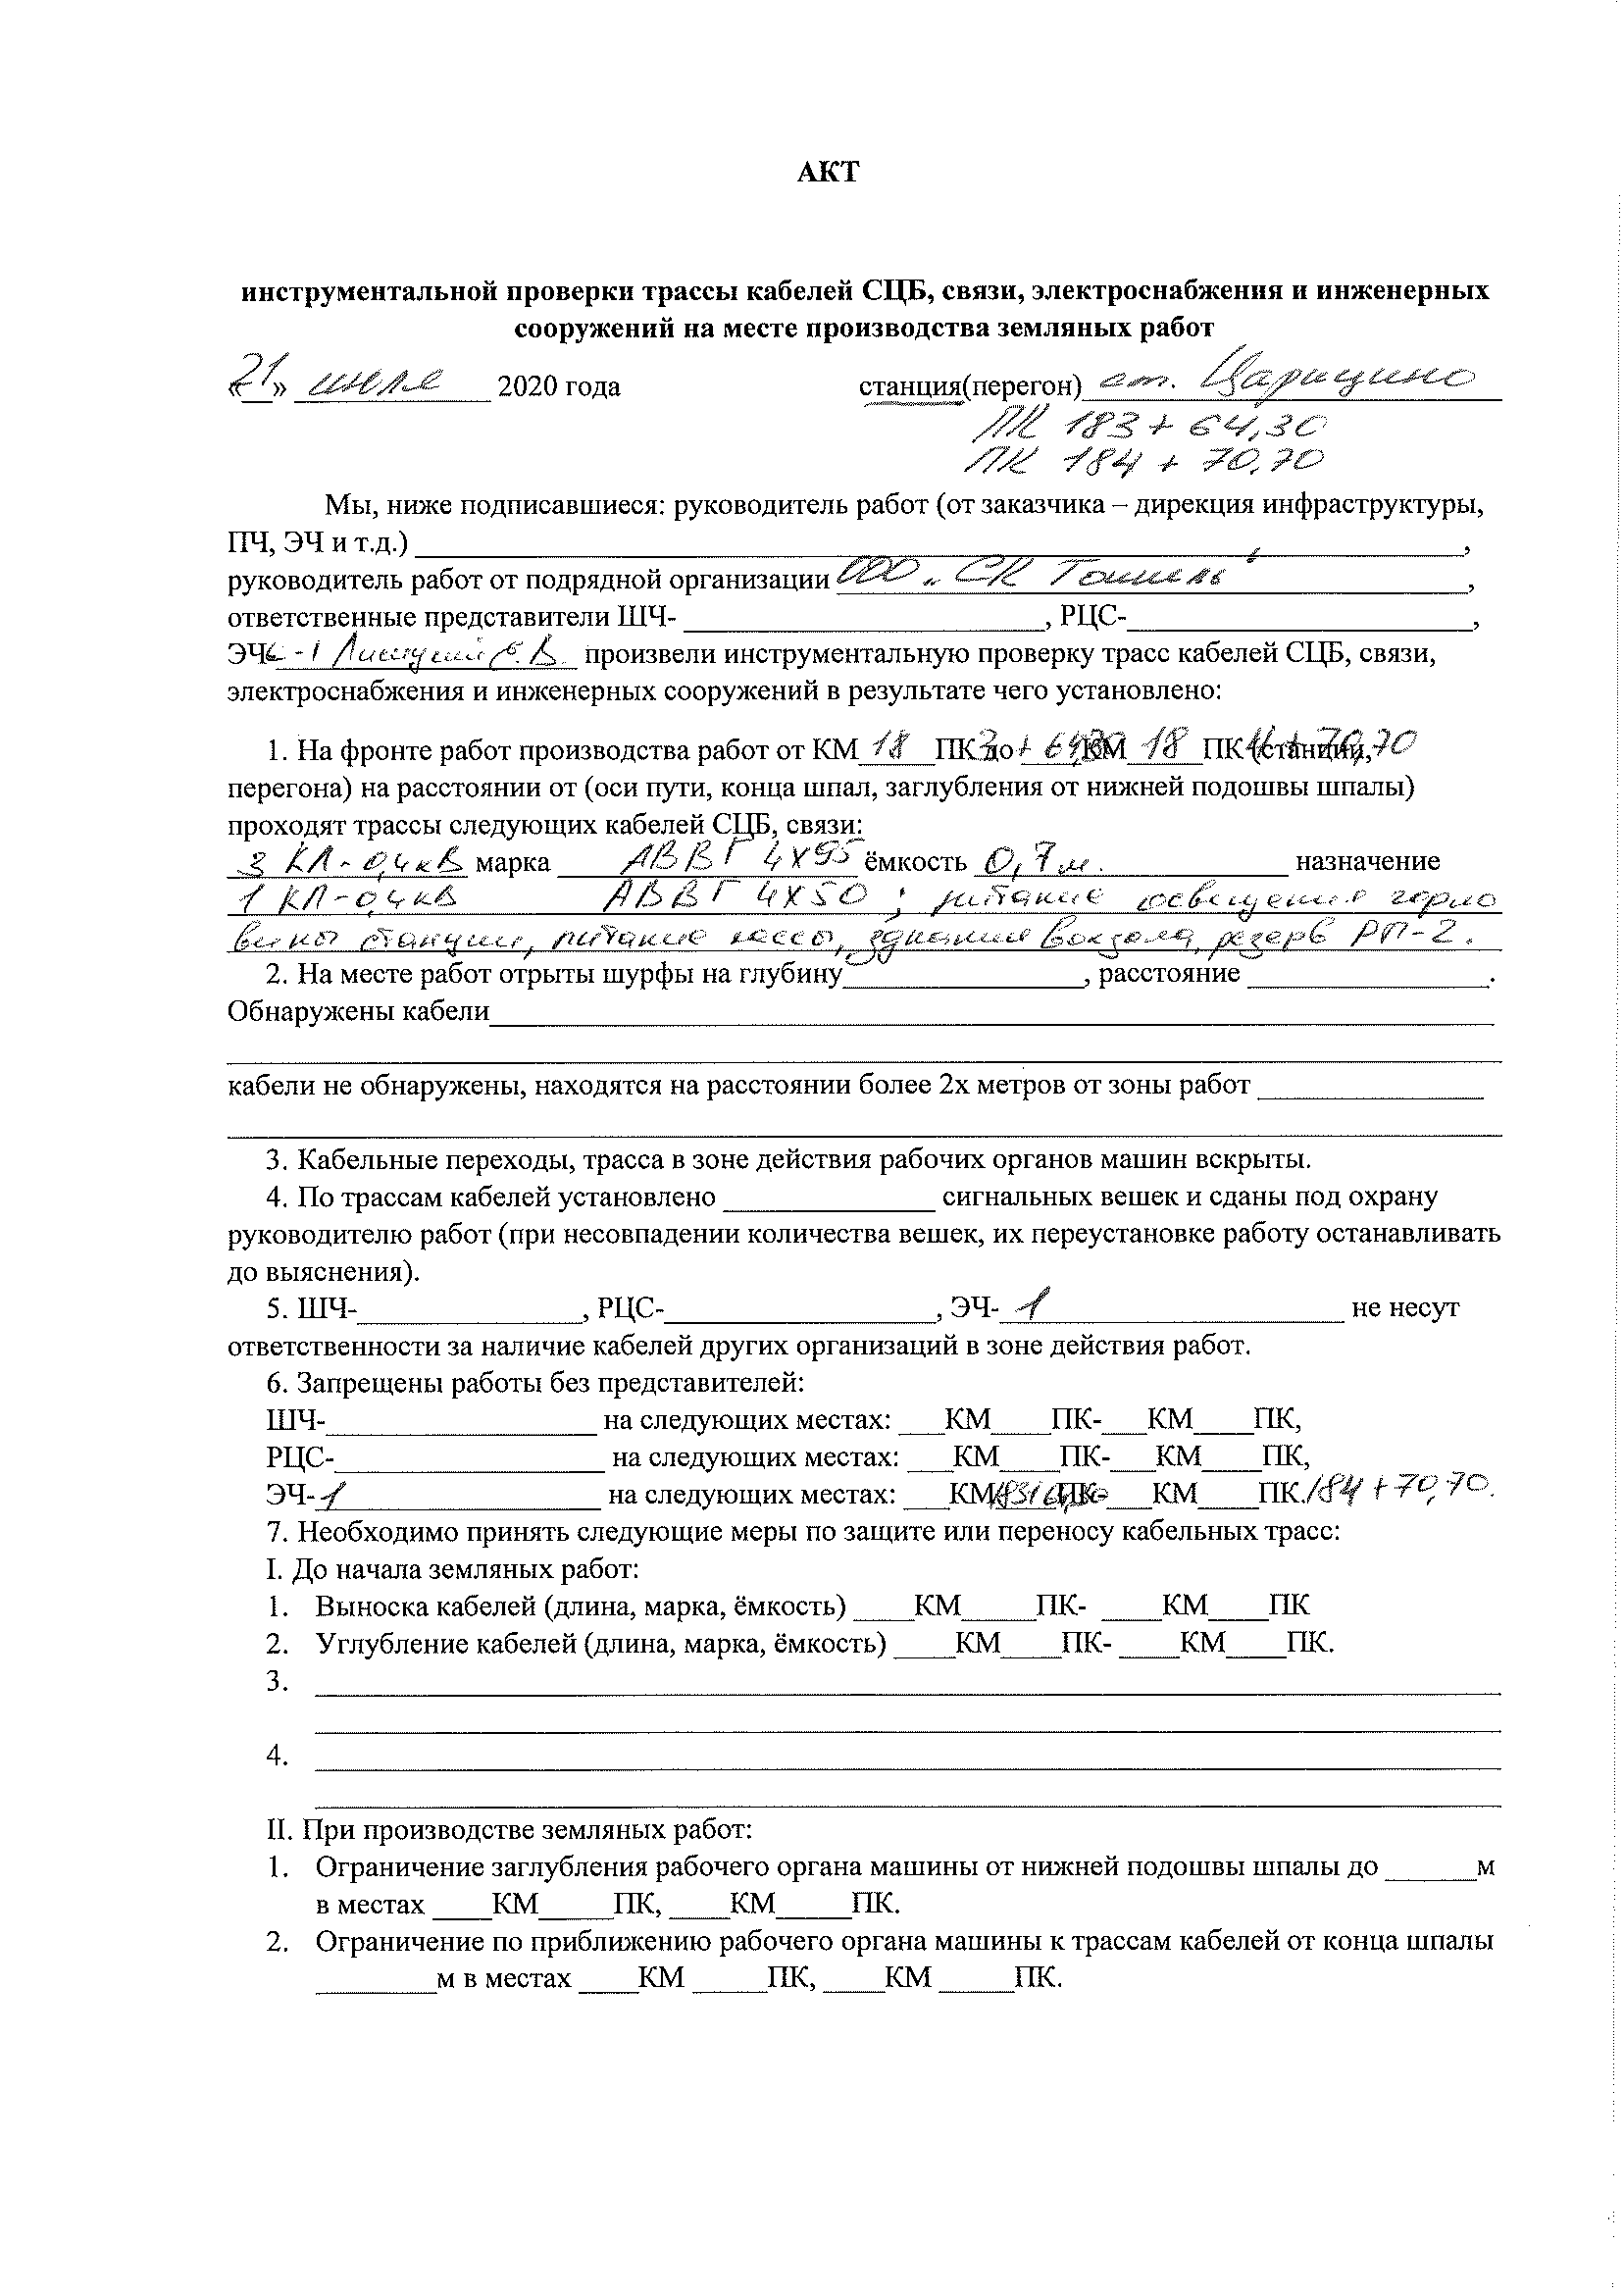 АКТ
инструментальной проверки трассы кабелей СЦБ, связи, электроснабжения и инженерных
сооружений на месте производства земляных работ
«21» июля 2020 года станция(перегон) ст. Царицино
ПК 183 + 64,30
ПК 184 + 70,70
Мы, ниже подписавшиеся: руководитель работ (от заказчика – дирекция инфраструктуры,
ПЧ, ЭЧ и т.д.) ,
руководитель работ от подрядной организации ООО „СК ,
ответственные представители ШЧ- , РЦС- ,
ЭЧ -1 В. произвели инструментальную проверку трасс кабелей СЦБ, связи,
электроснабжения и инженерных сооружений в результате чего установлено:
1. На фронте работ производства работ от КМ 18 ПК 3 + 64,30 до КМ 18 ПК 4 + 70,70 (станции,
перегона) на расстоянии от (оси пути, конца шпал, заглубления от нижней подошвы шпалы)
проходят трассы следующих кабелей СЦБ, связи:
3 КЛ-0,4кВ марка АВВГ 4х95 ёмкость 0,7м. назначение
1 КЛ-0,4кВ АВВГ 4х50 ; питание освещения горло
вины станции, питание кассы, здания вокзала, резерв РП-2.
2. На месте работ отрыты шурфы на глубину , расстояние .
Обнаружены кабели
кабели не обнаружены, находятся на расстоянии более 2х метров от зоны работ
3. Кабельные переходы, трасса в зоне действия рабочих органов машин вскрыты.
4. По трассам кабелей установлено сигнальных вешек и сданы под охрану
руководителю работ (при несовпадении количества вешек, их переустановке работу останавливать
до выяснения).
5. ШЧ- , РЦС- , ЭЧ- 1 не несут
ответственности за наличие кабелей других организаций в зоне действия работ.
6. Запрещены работы без представителей:
ШЧ- на следующих местах: КМ ПК- КМ ПК,
РЦС- на следующих местах: КМ ПК- КМ ПК,
ЭЧ-1 на следующих местах: КМ ПК- КМ ПК. 184 + 70,70.
7. Необходимо принять следующие меры по защите или переносу кабельных трасс:
I. До начала земляных работ:
1. Выноска кабелей (длина, марка, ёмкость) КМ ПК- КМ ПК
2. Углубление кабелей (длина, марка, ёмкость) КМ ПК- КМ ПК.
3.
4.
II. При производстве земляных работ:
1. Ограничение заглубления рабочего органа машины от нижней подошвы шпалы до м
в местах КМ ПК, КМ ПК.
2. Ограничение по приближению рабочего органа машины к трассам кабелей от конца шпалы
м в местах КМ ПК, КМ ПК.